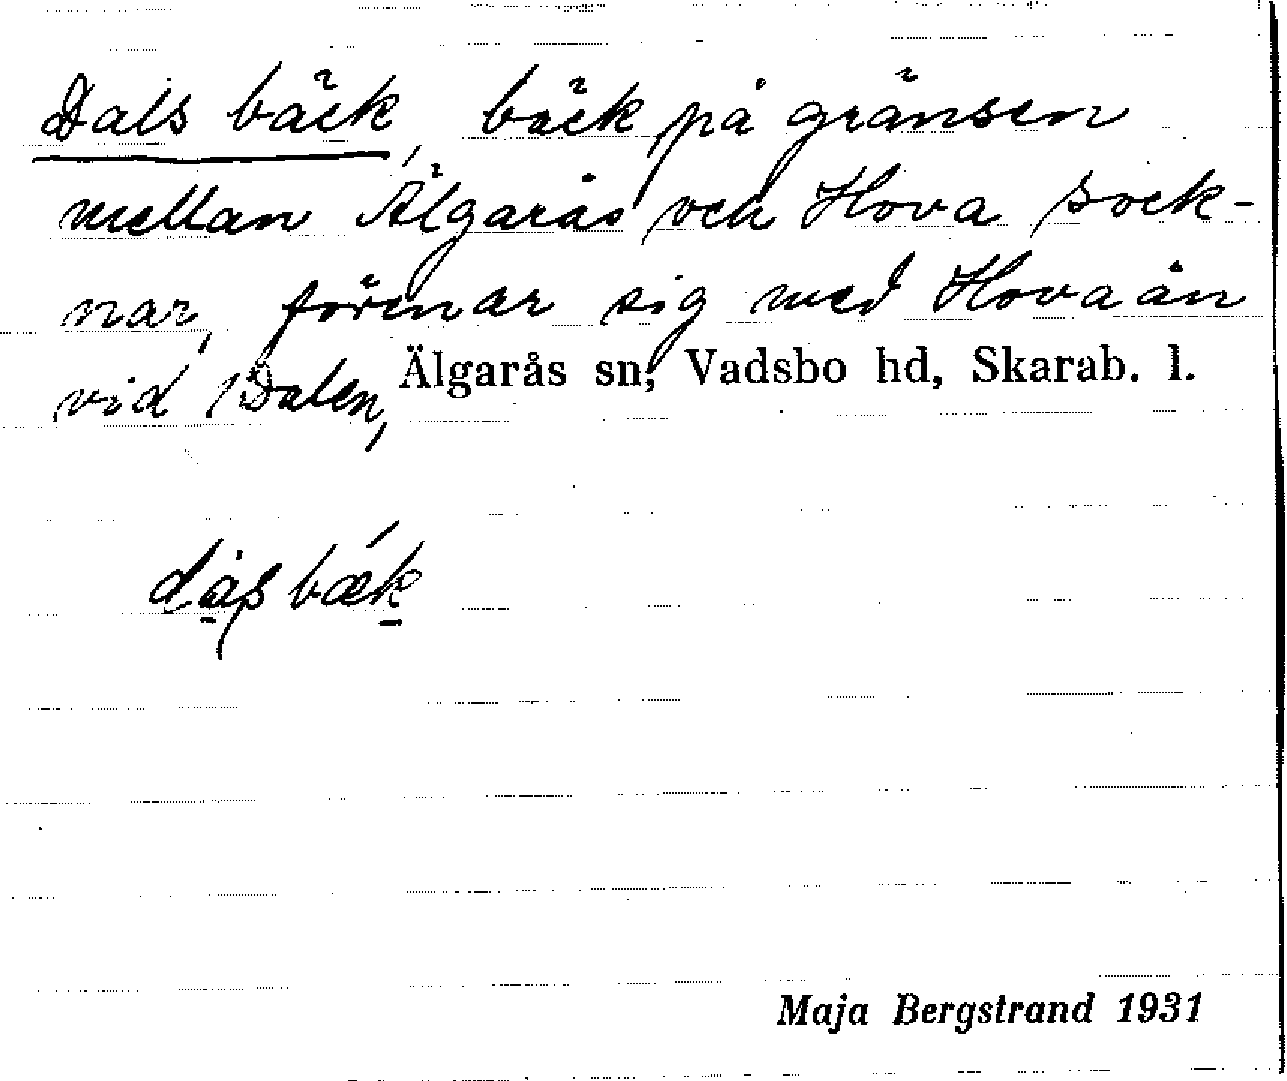 Dals bäck, bäck på gränsen
mellan Älgarås och Hova sock-
nar, förenar sig med Hovaån
vid Dalen, Älgarås sn, Vadsbo hd, Skarab. l.
bæk
Maja Bergstrand 1931